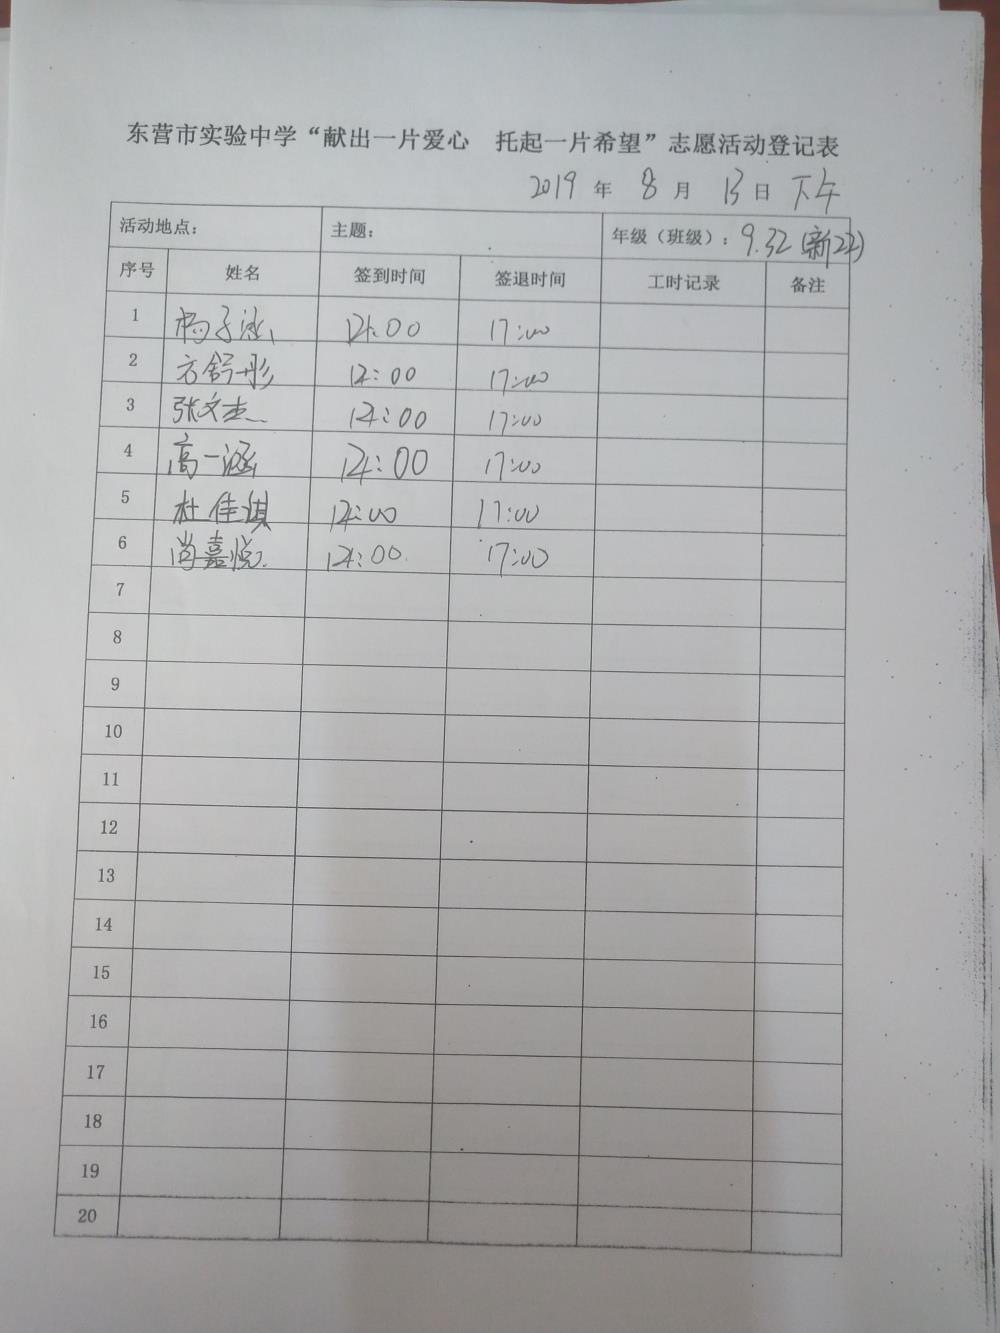 东营市实验中学“献出一片爱心 托起一片希望”志愿活动登记表
2019 年 8 月 13 日 下午
活动地点： 主题： 年级（班级）：9.32(新22)
序号 姓名 签到时间 签退时间 工时记录 备注
1 杨子涵 14:00 17:00
2 方舒彤 14:00 17:00
3 张文杰 14:00 17:00
4 高一涵 14:00 17:00
5 杜佳淇 14:00 17:00
6 尚嘉悦 14:00 17:00
7
8
9
10
11
12
13
14
15
16
17
18
19
20